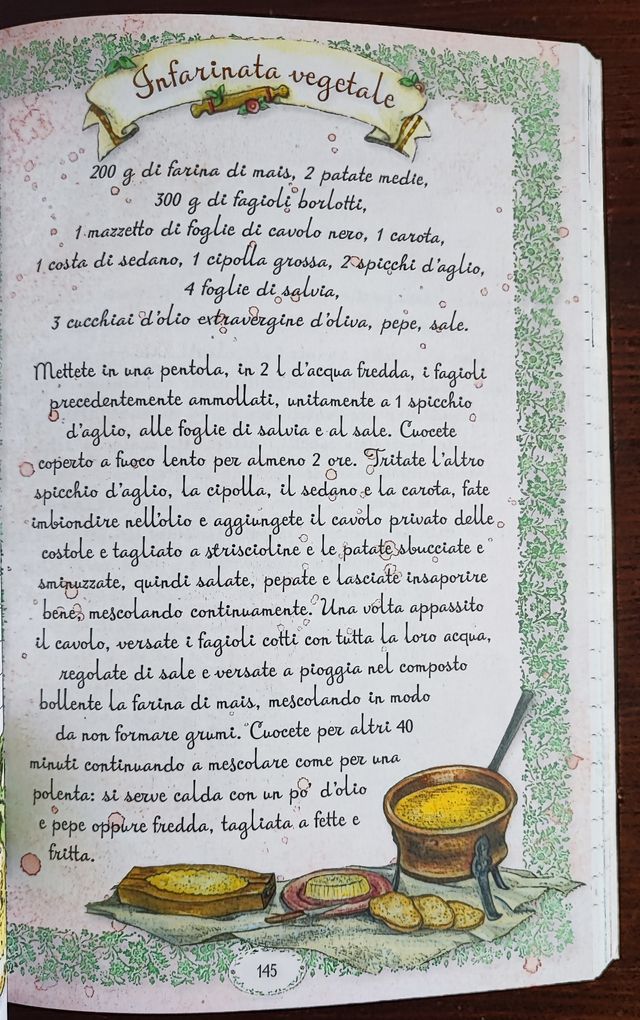 Infarinata vegetale
200 g di farina di mais, 2 patate medie,
300 g di fagioli borlotti,
1 mazzetto di foglie di cavolo nero, 1 carota,
1 costa di sedano, 1 cipolla grossa, 2 spicchi d'aglio,
4 foglie di salvia,
3 cucchiai d'olio extravergine d'oliva, pepe, sale.
Mettete in una pentola, in 2 l d'acqua fredda, i fagioli
precedentemente ammollati, unitamente a 1 spicchio
d'aglio, alle foglie di salvia e al sale. Cuocete
coperto a fuoco lento per almeno 2 ore. Tritate l'altro
spicchio d'aglio, la cipolla, il sedano e la carota, fate
imbiondire nell'olio e aggiungete il cavolo privato delle
costole e tagliato a striscioline e le patate sbucciate e
sminuzzate, quindi salate, pepate e lasciate insaporire
bene, mescolando continuamente. Una volta appassito
il cavolo, versate i fagioli cotti con tutta la loro acqua,
regolate di sale e versate a pioggia nel composto
bollente la farina di mais, mescolando in modo
da non formare grumi. Cuocete per altri 40
minuti continuando a mescolare come per una
polenta: si serve calda con un po' d'olio
e pepe oppure fredda, tagliata a fette e
fritta.
145